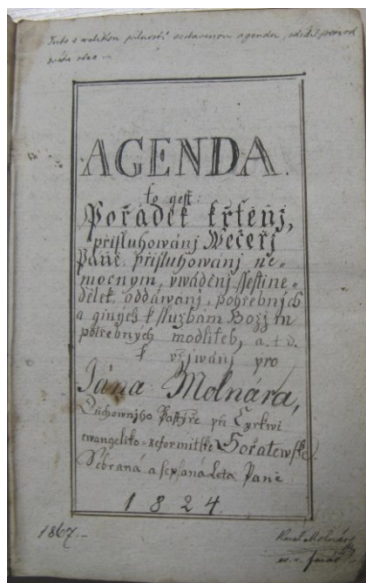 Tuto s velikou pilností sestavenou agendu, zdědil po
AGENDA.
to gest:
Pořádek křtěnj,
přisluhowánj Wečeřj
Páně, přisluhowánj ne-
mocnym, vwáděnj ssestine-
dělek, oddáwanj, pohřebných
a giných k službám Božjm
potřebných modliteb, a. t. d.
k vžjwánj pro
Jána Molnára,
Duchownjho Pastýře při Cyrkwi
ewangelicko-reformitské
Sebraná a sepsaná Léta Páně
1824.
1867.
Karel Molnár